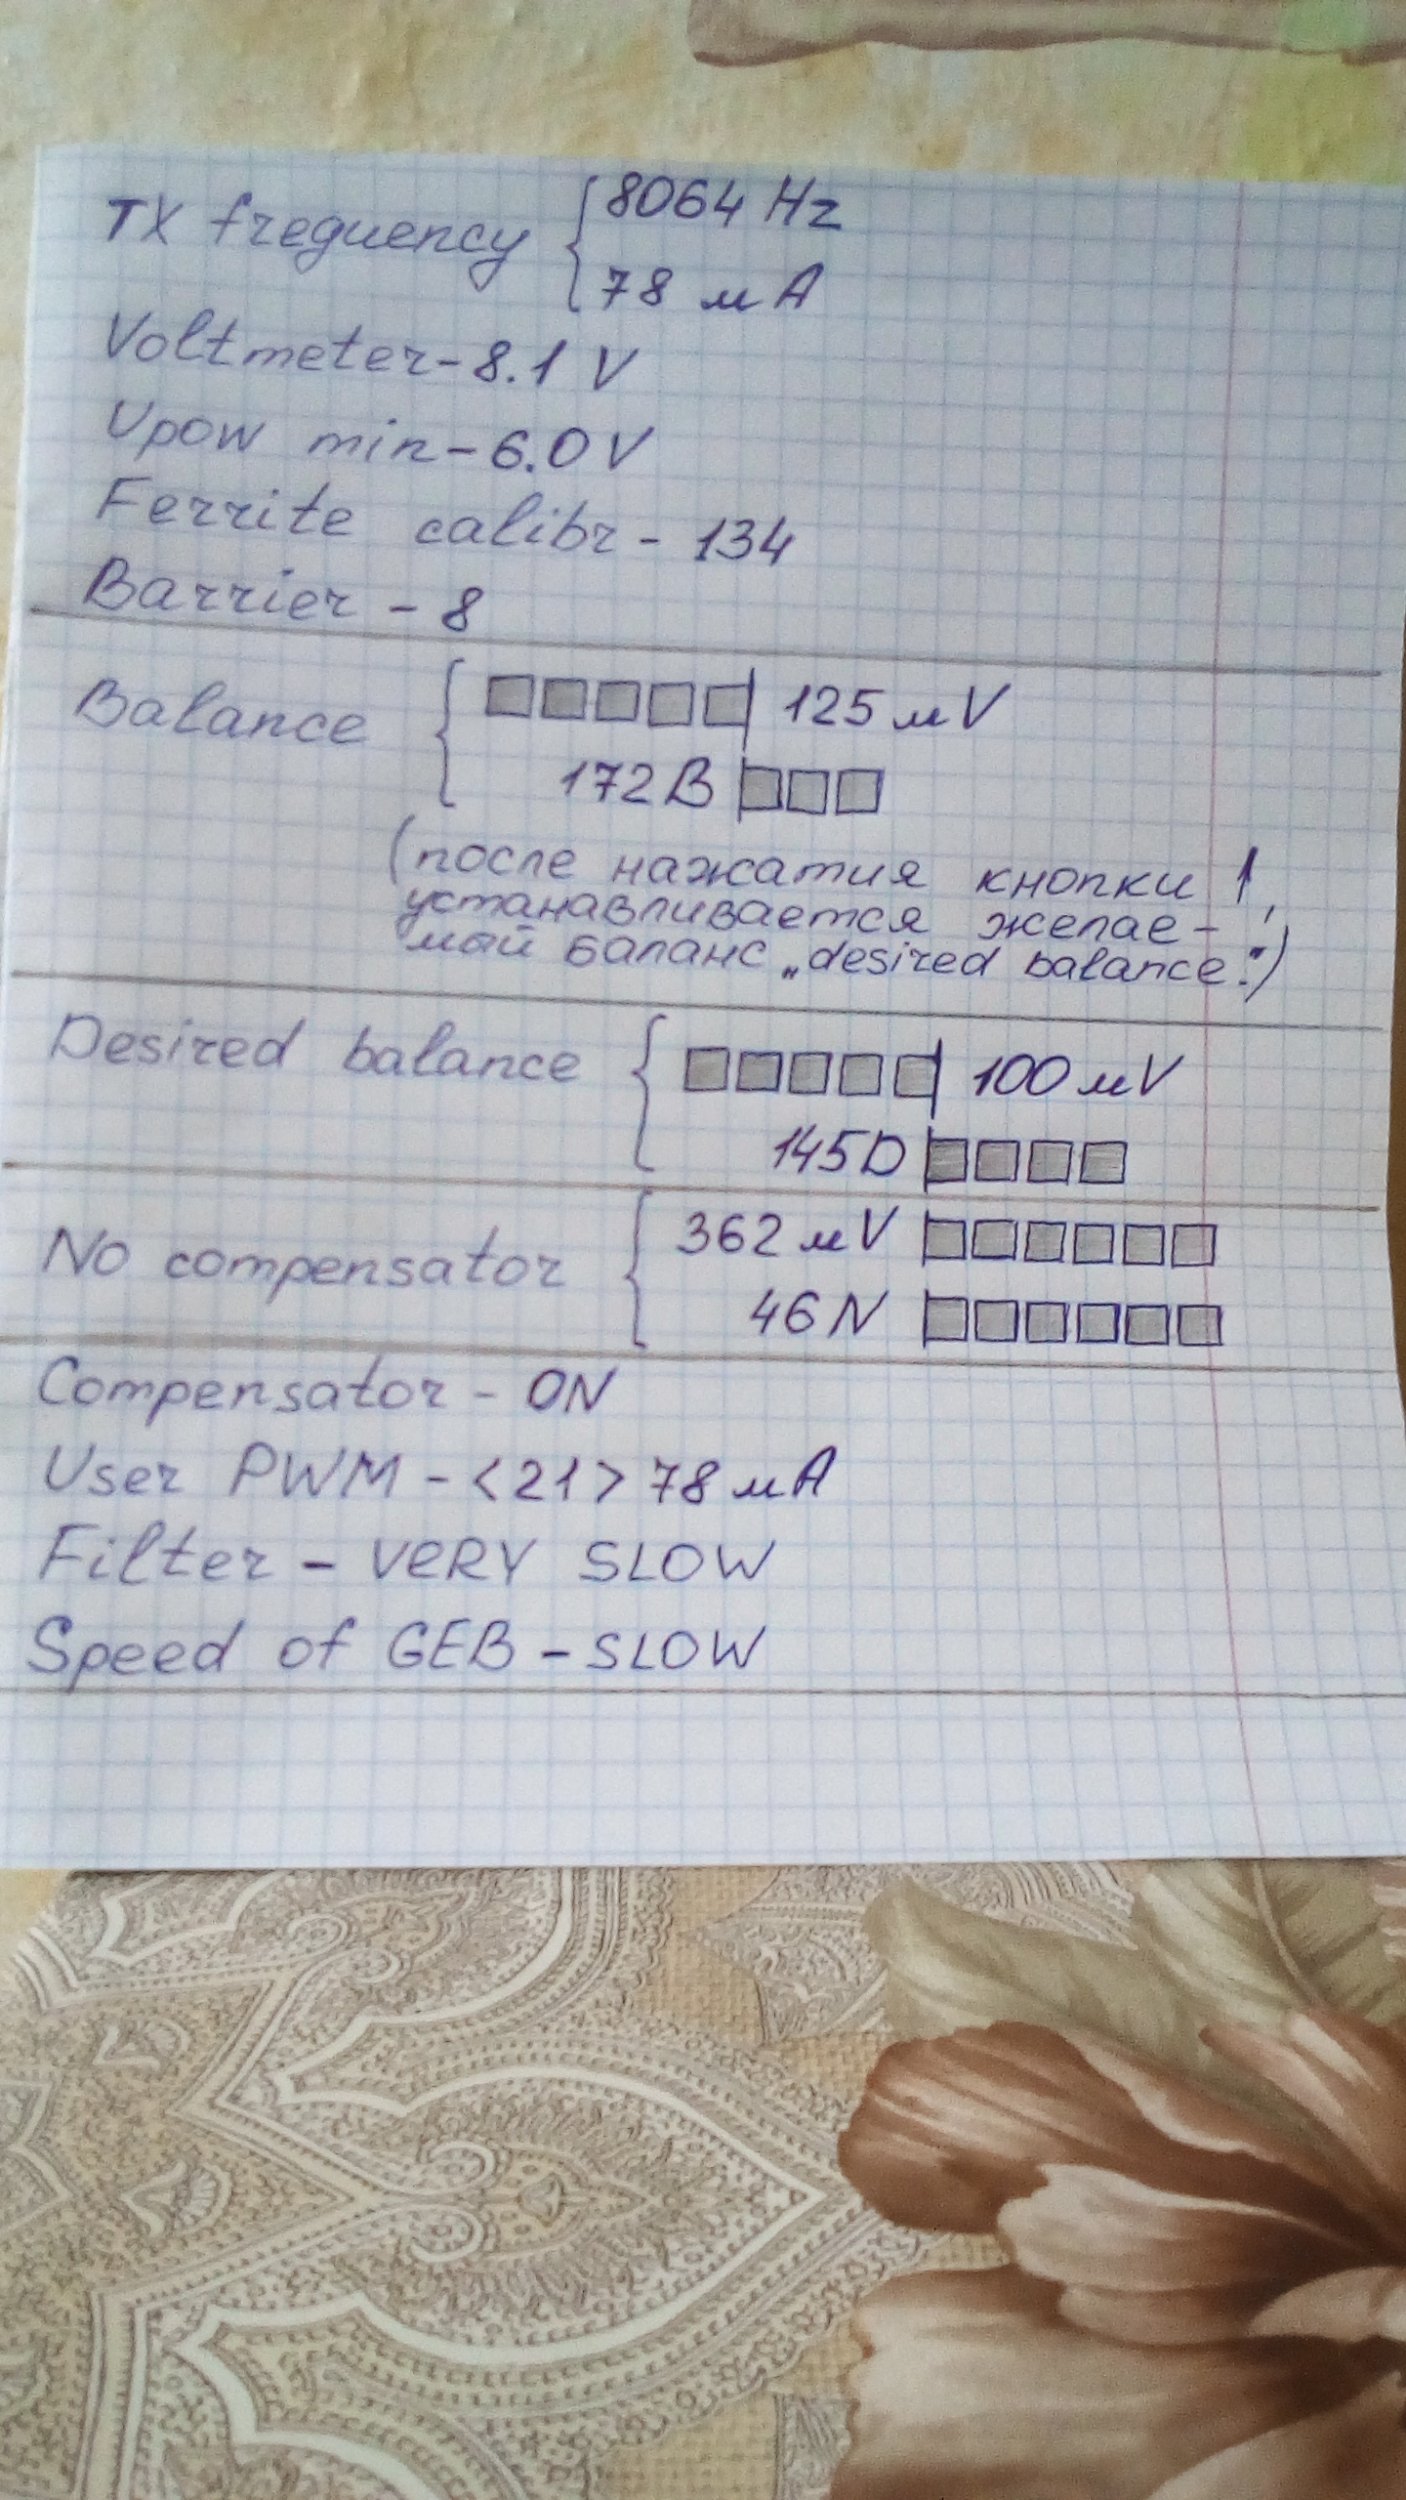 TX freguency { 8064 Hz
78 мA
Voltmeter - 8.1 V
Upow min - 6.0 V
Ferrite calibr - 134
Barrier - 8
Balance { □□□□□| 125 мV
172B |□□□
(после нажатия кнопки ↑,
устанавливается желае-
мый баланс „desired balance".)
Desired balance { □□□□□| 100 мV
145D |□□□□
No compensator { 362 мV |□□□□□□
46N |□□□□□□
Compensator - ON
User PWM - <21> 78 мA
Filter - VERY SLOW
Speed of GEB - SLOW